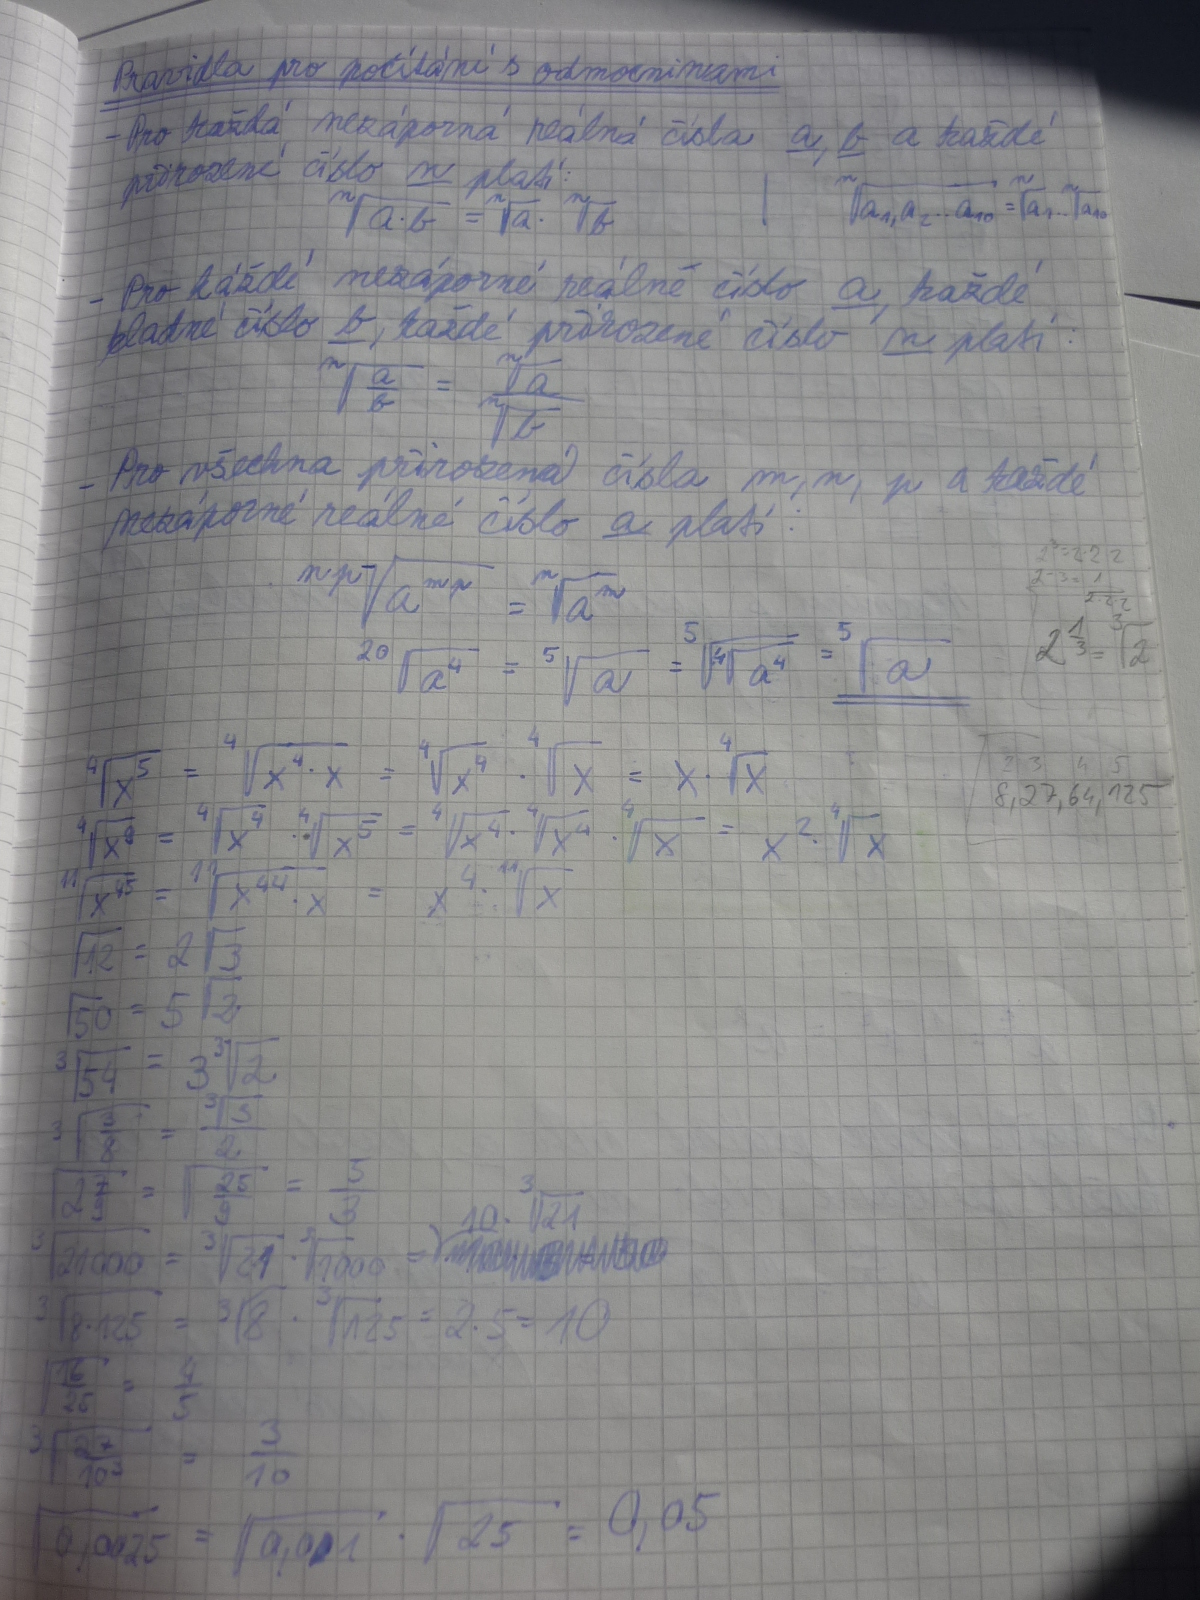 Pravidla pro počítání s odmocninami
- Pro každá nezáporná reálná čísla a, b a každé
přirozené číslo n platí:
ⁿ√(a·b) = ⁿ√a · ⁿ√b | ⁿ√(a₁, a₂ ... a₁₀) = ⁿ√a₁ ... ⁿ√a₁₀
- Pro káždé nezáporné reálné číslo a, každé
kladné číslo b, každé přirozené číslo n platí:
ⁿ√(a/b) = ⁿ√a / ⁿ√b
- Pro všechna přirozená čísla m, n, p a každé
nezáporné reálné číslo a platí:
2³ = 2·2·2
2⁻³ = 1/(2·2·2)
ⁿᵖ√(aᵐᵖ) = ⁿ√(aᵐ)
2^(1/3) = ³√2
²⁰√(a⁴) = ⁵√a = ⁵√(⁴√(a⁴)) = ⁵√a
⁴√(x⁵) = ⁴√(x⁴·x) = ⁴√(x⁴) · ⁴√x = x · ⁴√x
2 3 4 5
8, 27, 64, 125
⁴√(x⁹) = ⁴√(x⁴) · ⁴√(x⁵) = ⁴√(x⁴) · ⁴√(x⁴) · ⁴√x = x² · ⁴√x
¹¹√(x⁴⁵) = ¹¹√(x⁴⁴·x) = x⁴ · ¹¹√x
√12 = 2√3
√50 = 5√2
³√54 = 3 ³√2
³√(3/8) = ³√3 / 2
√(2 7/9) = √(25/9) = 5/3
10 · ³√21
³√21000 = ³√21 · ³√1000 =
³√(8·125) = ³√8 · ³√125 = 2·5 = 10
√(16/25) = 4/5
³√(27/10³) = 3/10
√0,0025 = √0,001 · √25 = 0,05